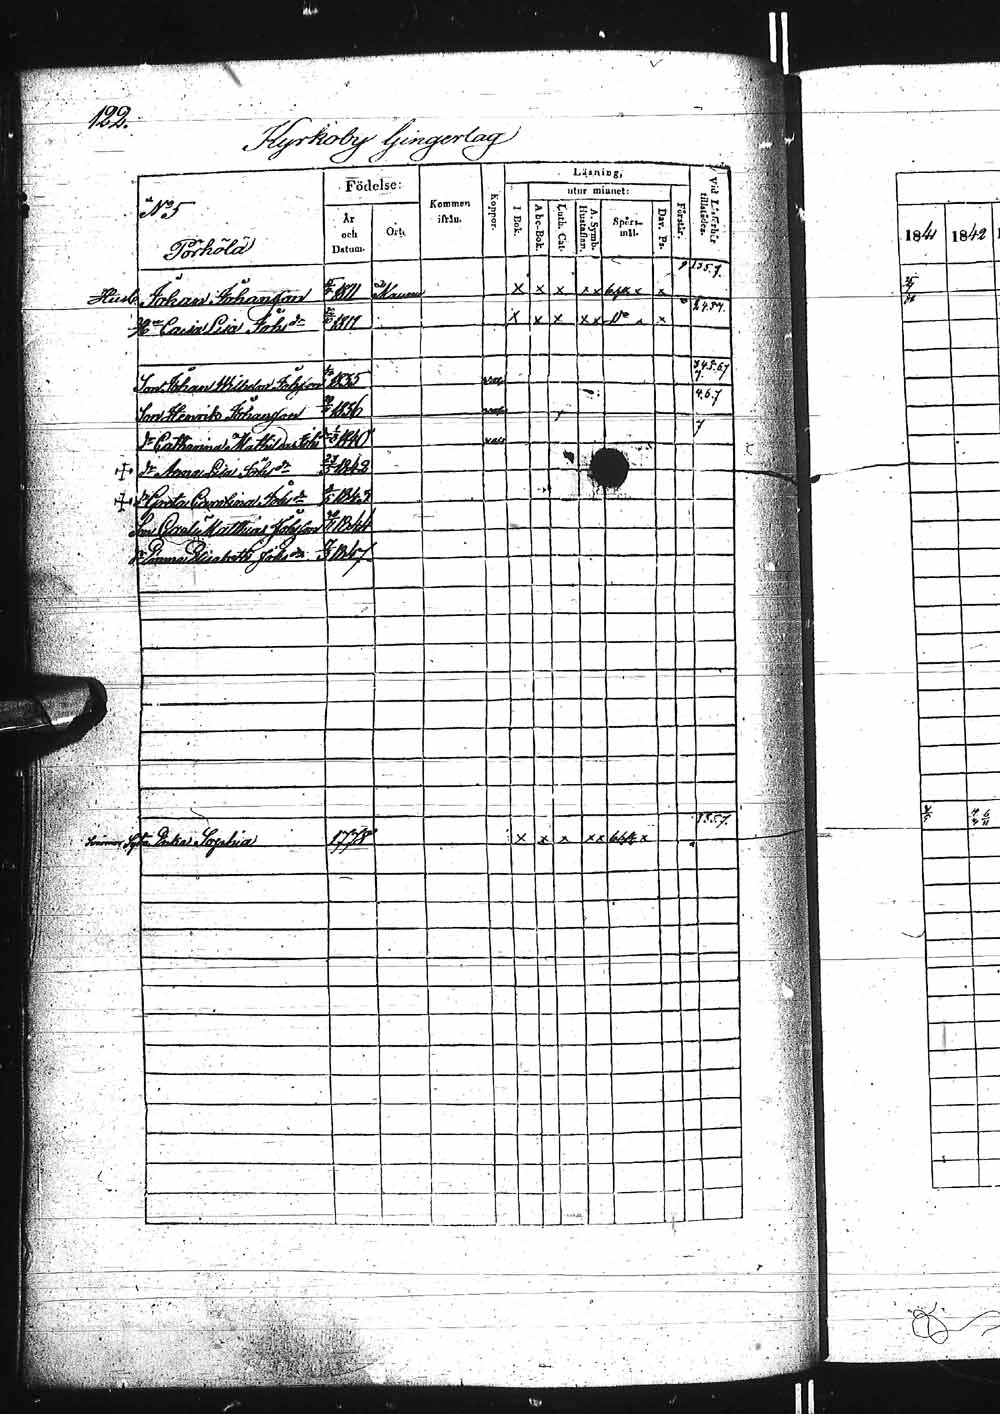 122.
Kyrkoby Gingerlag
No 5
Pörhölä
Födelse:
År och Datum.
Ort.
Kommen ifrån.
Koppor.
Läsning,
utur minnet:
I Bok.
Abc-Bok.
Luth. Cat.
A. Symb. Hustaflan.
Spörsmål.
Dav. Ps.
Förstår.
Vid Läseförhör tillstädes.
1841 1842
Johan Johansson 1811 x x x x x x x 1 3 5. 7.
Caisa Lisa Johs dr 1811 x x x x x x 2 4 5 7.
Son Johan Wilhelm Johsson 1835 vac 3 4 5. 6 7
Son Henrik Johansson 1836 vac 4. 6. 7
dr Catharina Mathilda Johs dr 1840 vac 7
dr Anna Lisa Johs dr 1842
dr Greta Carolina Johs dr 1843
Son Carl Matthias Johsson 1844
dr Elisabeth Johs dr 1847
Sophia 1778 x x x x x x 1 3 5 7.